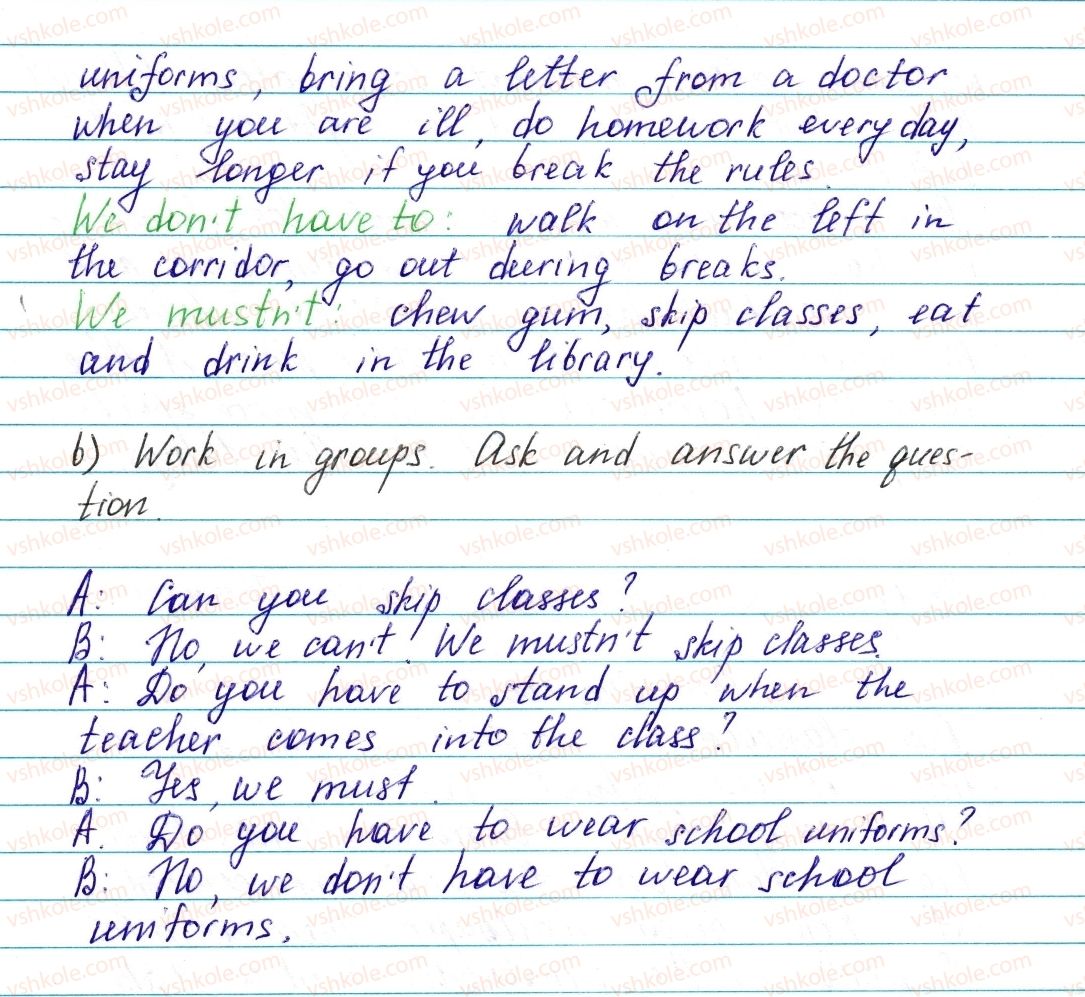 uniforms, bring a letter from a doctor
when you are ill, do homework every day,
stay longer if you break the rules.
We don't have to: walk on the left in
the corridor, go out during breaks.
We mustn't: chew gum, skip classes, eat
and drink in the library.
b) Work in groups. Ask and answer the ques-
tion.
A: Can you skip classes?
B: No, we can't. We mustn't skip classes.
A: Do you have to stand up when the
teacher comes into the class?
B: Yes, we must.
A. Do you have to wear school uniforms?
B: No, we don't have to wear school
uniforms.
vshkole.com